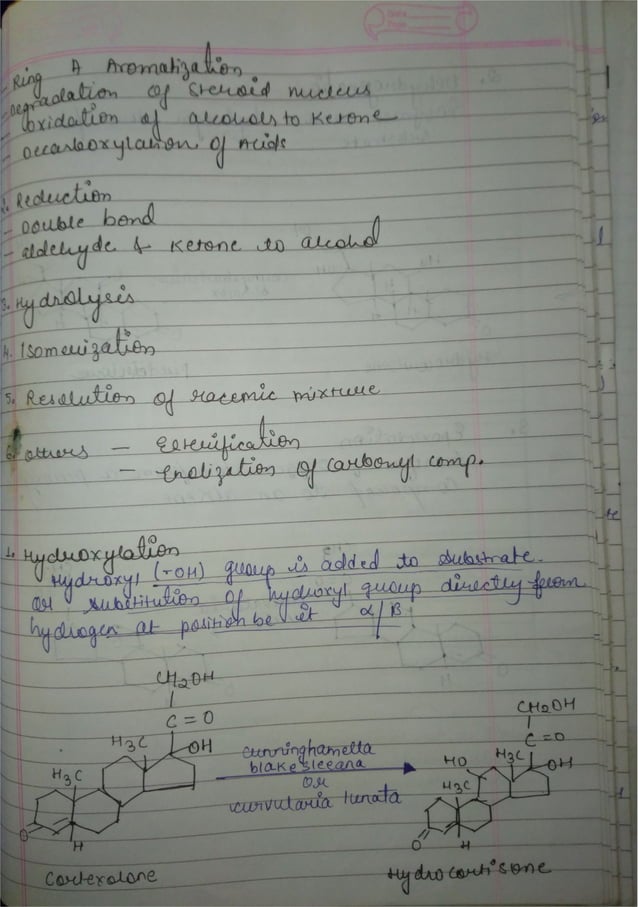 - Ring A Aromatization
- Degradation of steroid nucleus
- oxidation of alcohols to Ketone
- Decarboxylation of Acids
2. Reduction
- Double bond
- aldehyde & Ketone to alcohol
3. Hydrolysis
4. Isomerization
5. Resolution of racemic mixture
6. others - Esterification
- Enolization of carbonyl comp.
1. Hydroxylation
Hydroxyl (-OH) group is added to substrate.
or substitution of hydroxyl group directly from
hydrogen at position be it α/β
CH2OH
C=O
H3C
OH
H3C
O
H
Cortexolone
cunninghamella
blakesleeana
or
curvularia lunata
CH2OH
C=O
HO
H3C
OH
H3C
O
H
Hydrocortisone